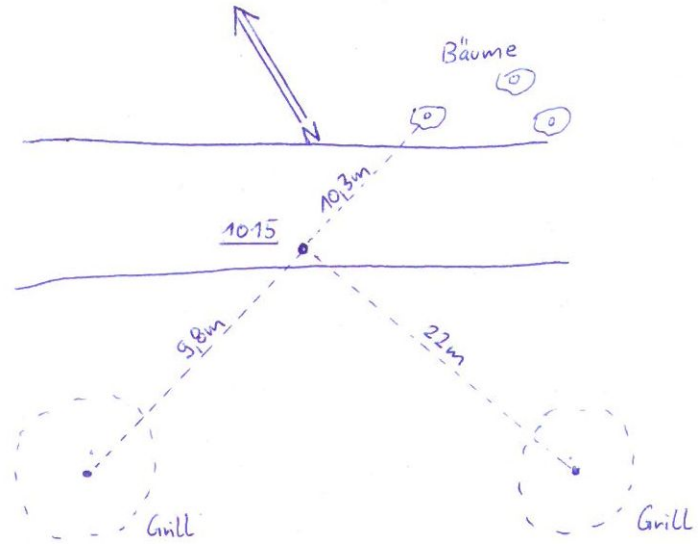 Bäume
N
10,3m
1015
9,8m
22m
Grill
Grill